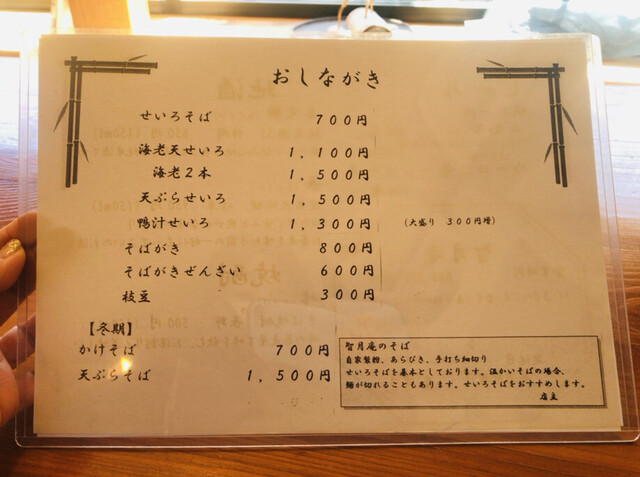 おしながき
せいろそば 700円
海老天せいろ 1,100円
海老2本 1,500円
天ぷらせいろ 1,500円
鴨汁せいろ 1,300円 (大盛り 300円増)
そばがき 800円
そばがきぜんざい 600円
枝豆 300円
【冬期】
かけそば 700円
天ぷらそば 1,500円
智月庵のそば
自家製粉、あらびき、手打ち細切り
せいろそばを基本としております。温かいそばの場合、
麺が切れることもあります。せいろそばをおすすめします。
店主